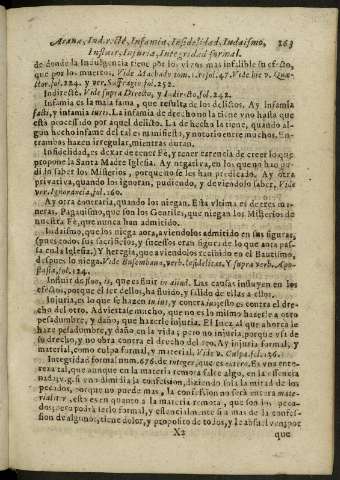 Arana, Indirectè, Infamia, Infidelidad, Iudaismo, 163
Influir, Injuria, Integridad formal.
de donde la Indulgencia tiene por los vivos mas infalible su efecto,
que por los muertos, Vide Machado tom. 1. fol. 47. Vide hic v. Quæ-
stor, fol. 224. y ver. Suffragio fol. 252.
Indirectè, Vide supra Directo, y Indirecto fol. 242.
Infamia es la mala fama, que resulta de los delictos. Ay infamia
facti, y infamia iuris. La infamia de derecho no la tiene vno hasta que
està processado por aquel delicto. La de hecho la tiene, quando al-
gun hecho infame del tal es manifiesto, y notorio entre muchos. En-
trambos hazen irregular, mientras duran.
Infidelidad, es dexar de tener Fè, y tener carencia de creer lo que
propone la Santa Madre Iglesia. Ay negativa, en los que no han po-
dido saber los Misterios, porque no se les han predicado. Ay otra
privativa, quando los ignoran, pudiendo, y deviendolo saber, Vide
ver. Ignorancia, fol. 160.
Ay otra contraria, quando los niegan. Esta vltima es de tres ma-
neras. Paganismo, que son los Gentiles, que niegan los Misterios de
nuestra Fè, que nunca han admitido.
Iudaismo, que los niega aora, aviendolos admitido en sus figuras,
(pues todos sus sacrificios, y sucessos eran figuras de lo que aora pas-
sa en la Iglesia.) Y heregia, que aviendolos recibido en el Bautismo,
despues lo niega. Vide Busembaum, verb. Infidelitas. Y supra verb. Apo-
stasia, fol. 124.
Influir de fluo, is, que es fluir in aliud. Las causas influyen en los
efectos, porque el ser dellos, ha fluido, y salido de ellas à ellos.
Injuria, es lo que se hazen in ius, y contra ius, esto es contra el dre-
cho del otro. Adviertase mucho, que no es lo mismo hazerle à otro
pesadumbre, y daño, que hazerle injuria. El Iuez al que ahorca le
hare pesadumbre, y daño en la vida; pero no injuria, porque vsa de
su drecho, y no obra contra el drecho del reo. Ay injuria formal, y
material, como culpa formal, y material. Vide v. Culpa fol. 136.
Integridad formal num. 676. de integer, que es entero. Es vna ente-
reza tal, que aunque en la materia remota falte algo, en la essencia
nada; v. g. si vno dimidia la confession, diziendo sola la mitad de los
pecados, porque no puede mas, la confession no serà entera mate-
rialiter, esto es en quanto à la materia remota, que son los peca-
dos; pero podrà serlo formal, y essencialmente si à mas de la confes-
sion de algunos, tiene dolor, y proposito de todos, y le absuelven; por
X2 que